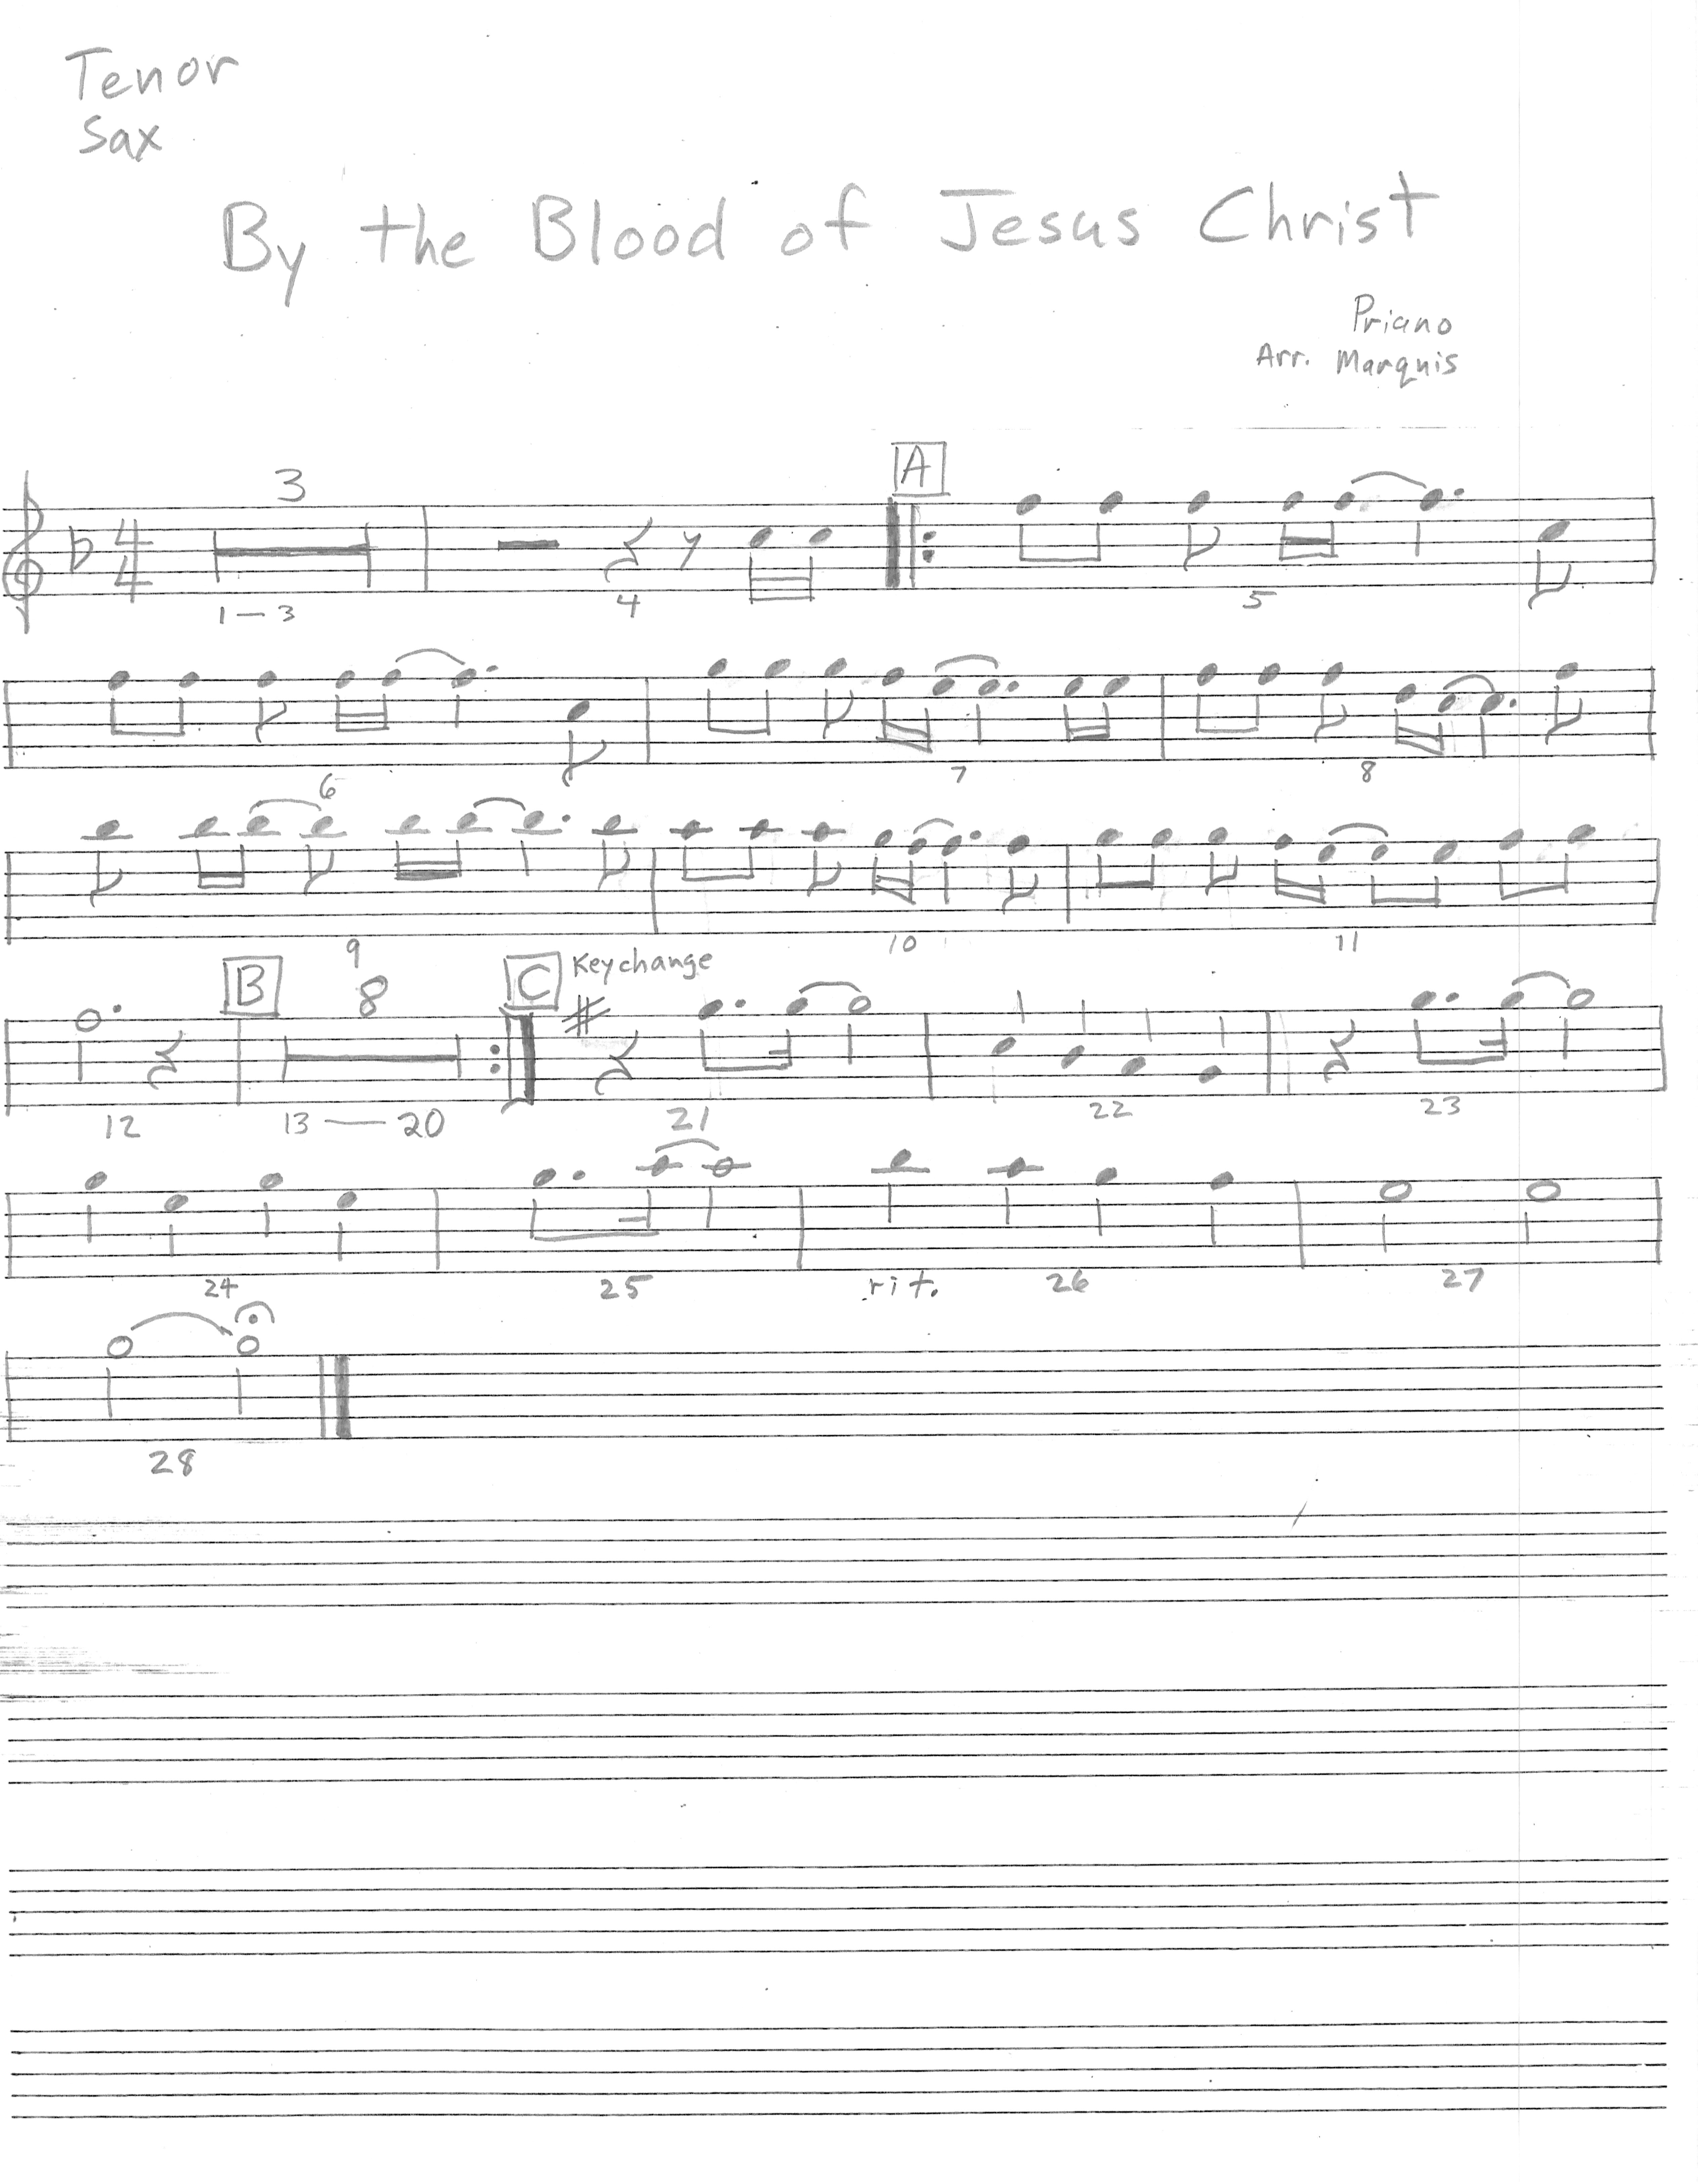 Tenor
Sax
By the Blood of Jesus Christ
Priano
Arr. Marquis
A
3
4
4
1-3
4
5
6
7
8
9
10
11
B
8
C
Keychange
12
13-20
21
22
23
24
25
rit.
26
27
28